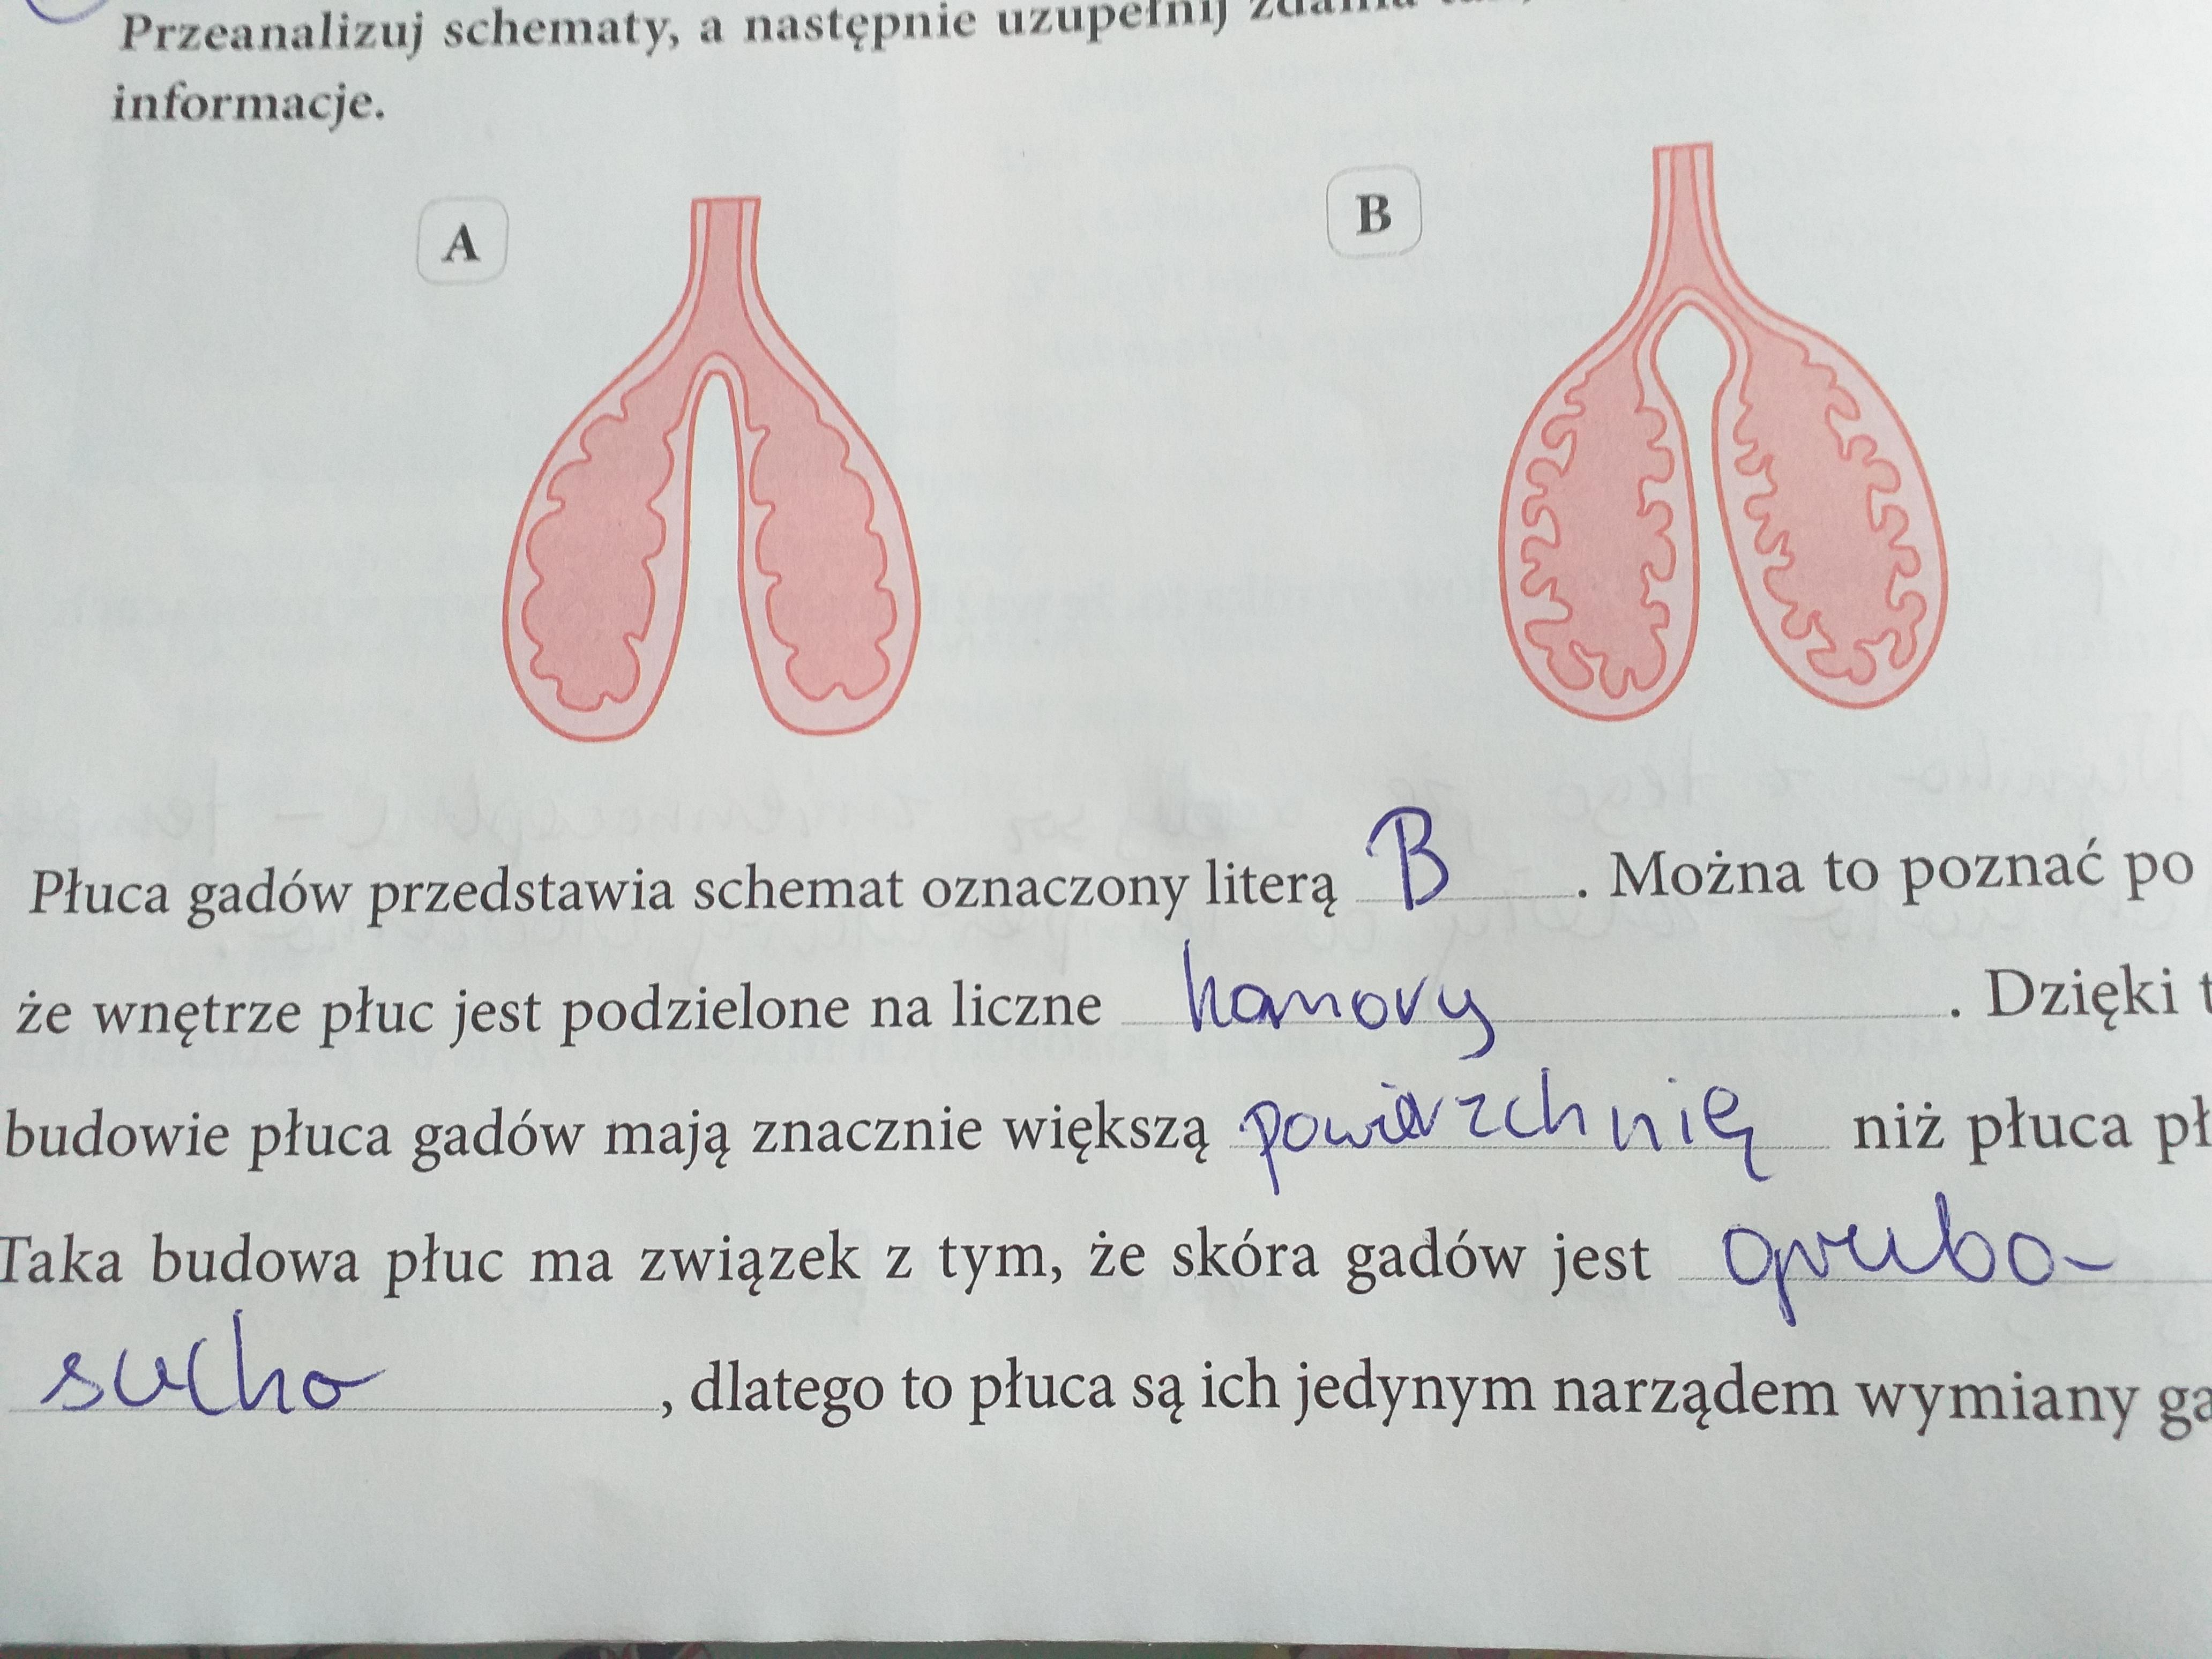 Przeanalizuj schematy, a następnie uzupełnij zdania
informacje.
A
B
Płuca gadów przedstawia schemat oznaczony literą B. Można to poznać po
że wnętrze płuc jest podzielone na liczne komory. Dzięki t
budowie płuca gadów mają znacznie większą powierzchnię niż płuca pł
Taka budowa płuc ma związek z tym, że skóra gadów jest gruba
sucha, dlatego to płuca są ich jedynym narządem wymiany ga